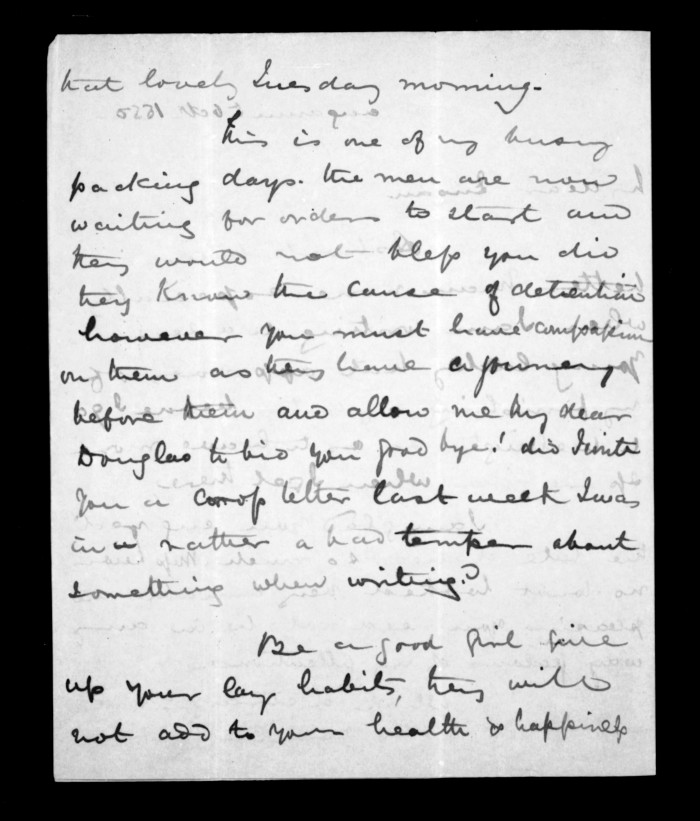 that lovely Tuesday morning.
This is one of my busy
packing days. the men are now
waiting for orders to start and
they would not bless you did
they Know the cause of detention
however you must have compassion
on them as they have a journey
before them and allow me my dear
Douglas to bid you good bye! did I write
you a cross letter last week I was
in a rather a bad temper about
something when writing?
Be a good girl give
up your lazy habits, they will
not add to your health & happiness